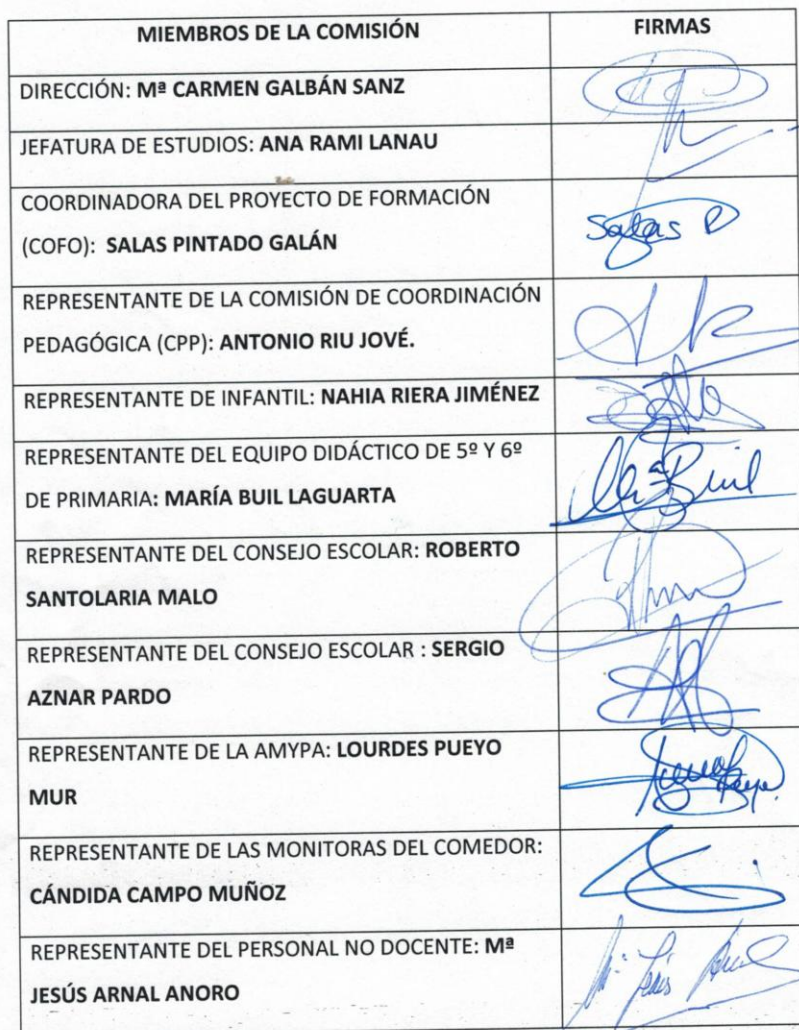 MIEMBROS DE LA COMISIÓN
FIRMAS
DIRECCIÓN: Mª CARMEN GALBÁN SANZ
JEFATURA DE ESTUDIOS: ANA RAMI LANAU
COORDINADORA DEL PROYECTO DE FORMACIÓN
(COFO): SALAS PINTADO GALÁN
Salas P
REPRESENTANTE DE LA COMISIÓN DE COORDINACIÓN
PEDAGÓGICA (CPP): ANTONIO RIU JOVÉ.
REPRESENTANTE DE INFANTIL: NAHIA RIERA JIMÉNEZ
REPRESENTANTE DEL EQUIPO DIDÁCTICO DE 5º Y 6º
DE PRIMARIA: MARÍA BUIL LAGUARTA
Mª Buil
REPRESENTANTE DEL CONSEJO ESCOLAR: ROBERTO
SANTOLARIA MALO
REPRESENTANTE DEL CONSEJO ESCOLAR : SERGIO
AZNAR PARDO
REPRESENTANTE DE LA AMYPA: LOURDES PUEYO
MUR
REPRESENTANTE DE LAS MONITORAS DEL COMEDOR:
CÁNDIDA CAMPO MUÑOZ
REPRESENTANTE DEL PERSONAL NO DOCENTE: Mª
JESÚS ARNAL ANORO
Mª Jesús Arnal